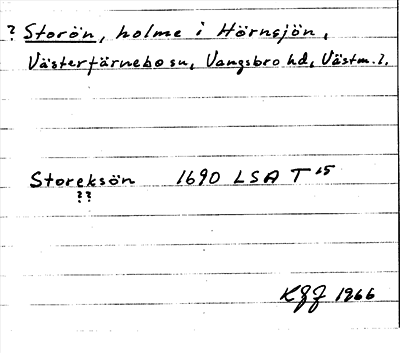 ? Storön, holme i Hörnsjön,
Västerfärnebo sn, Vangsbro hd, Västm. l.
Storeksön 1690 LSA T 15
??
1966